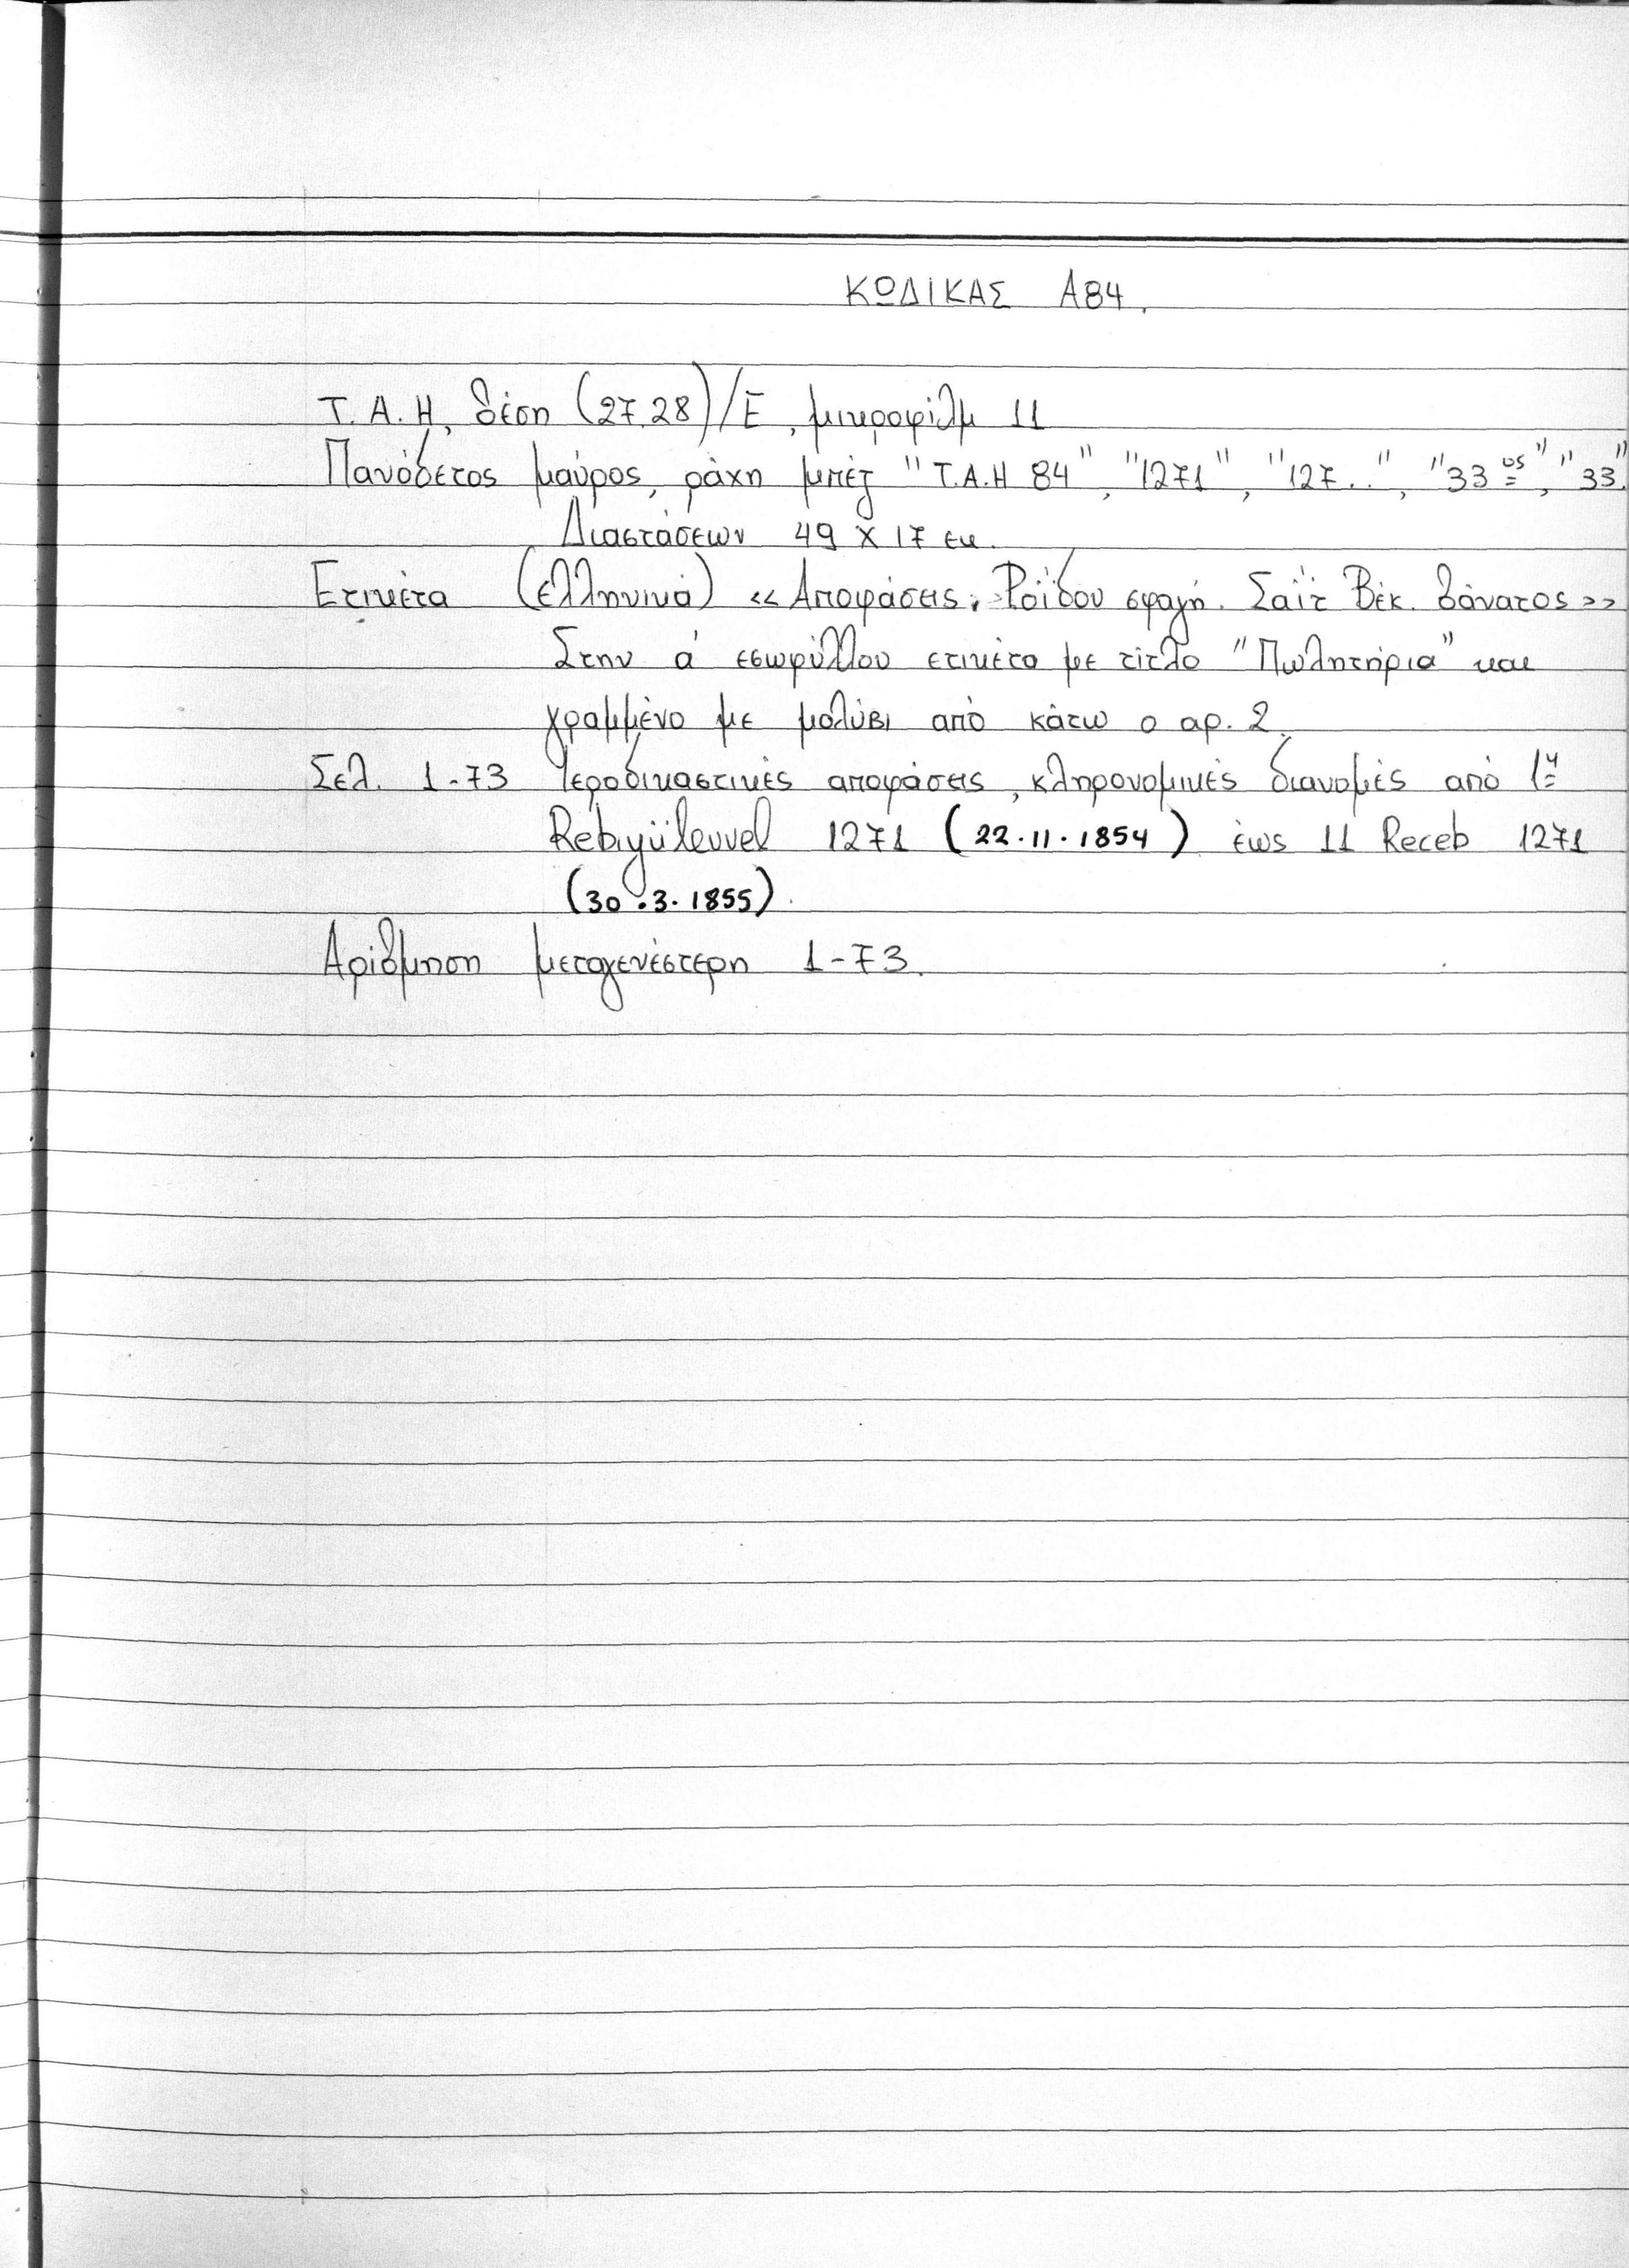 ΚΩΔΙΚΑΣ Α84.
Τ.Α.Η, θέση (27.28)/Ε, μικροφίλμ 11
Πανόδετος μαύρος, ράχη μπέζ "Τ.Α.Η 84", "1271", "127..", "33ος", "33"
Διαστάσεων 49 Χ 17 εκ.
Ετικέτα (ελληνικά) «Αποφάσεις, Ροΐδου σφαγή. Σαΐτ Βέκ. θάνατος»
Στην α' εσωφύλλου ετικέτα με τίτλο "Πωλητήρια" και
γραμμένο με μολύβι από κάτω ο αρ. 2.
Σελ. 1-73 Ιεροδικαστικές αποφάσεις, κληρονομικές διανομές από 1η
Rebiyülevvel 1271 (22.11.1854) έως 11 Receb 1271
(30.3.1855).
Αρίθμηση μεταγενέστερη 1-73.